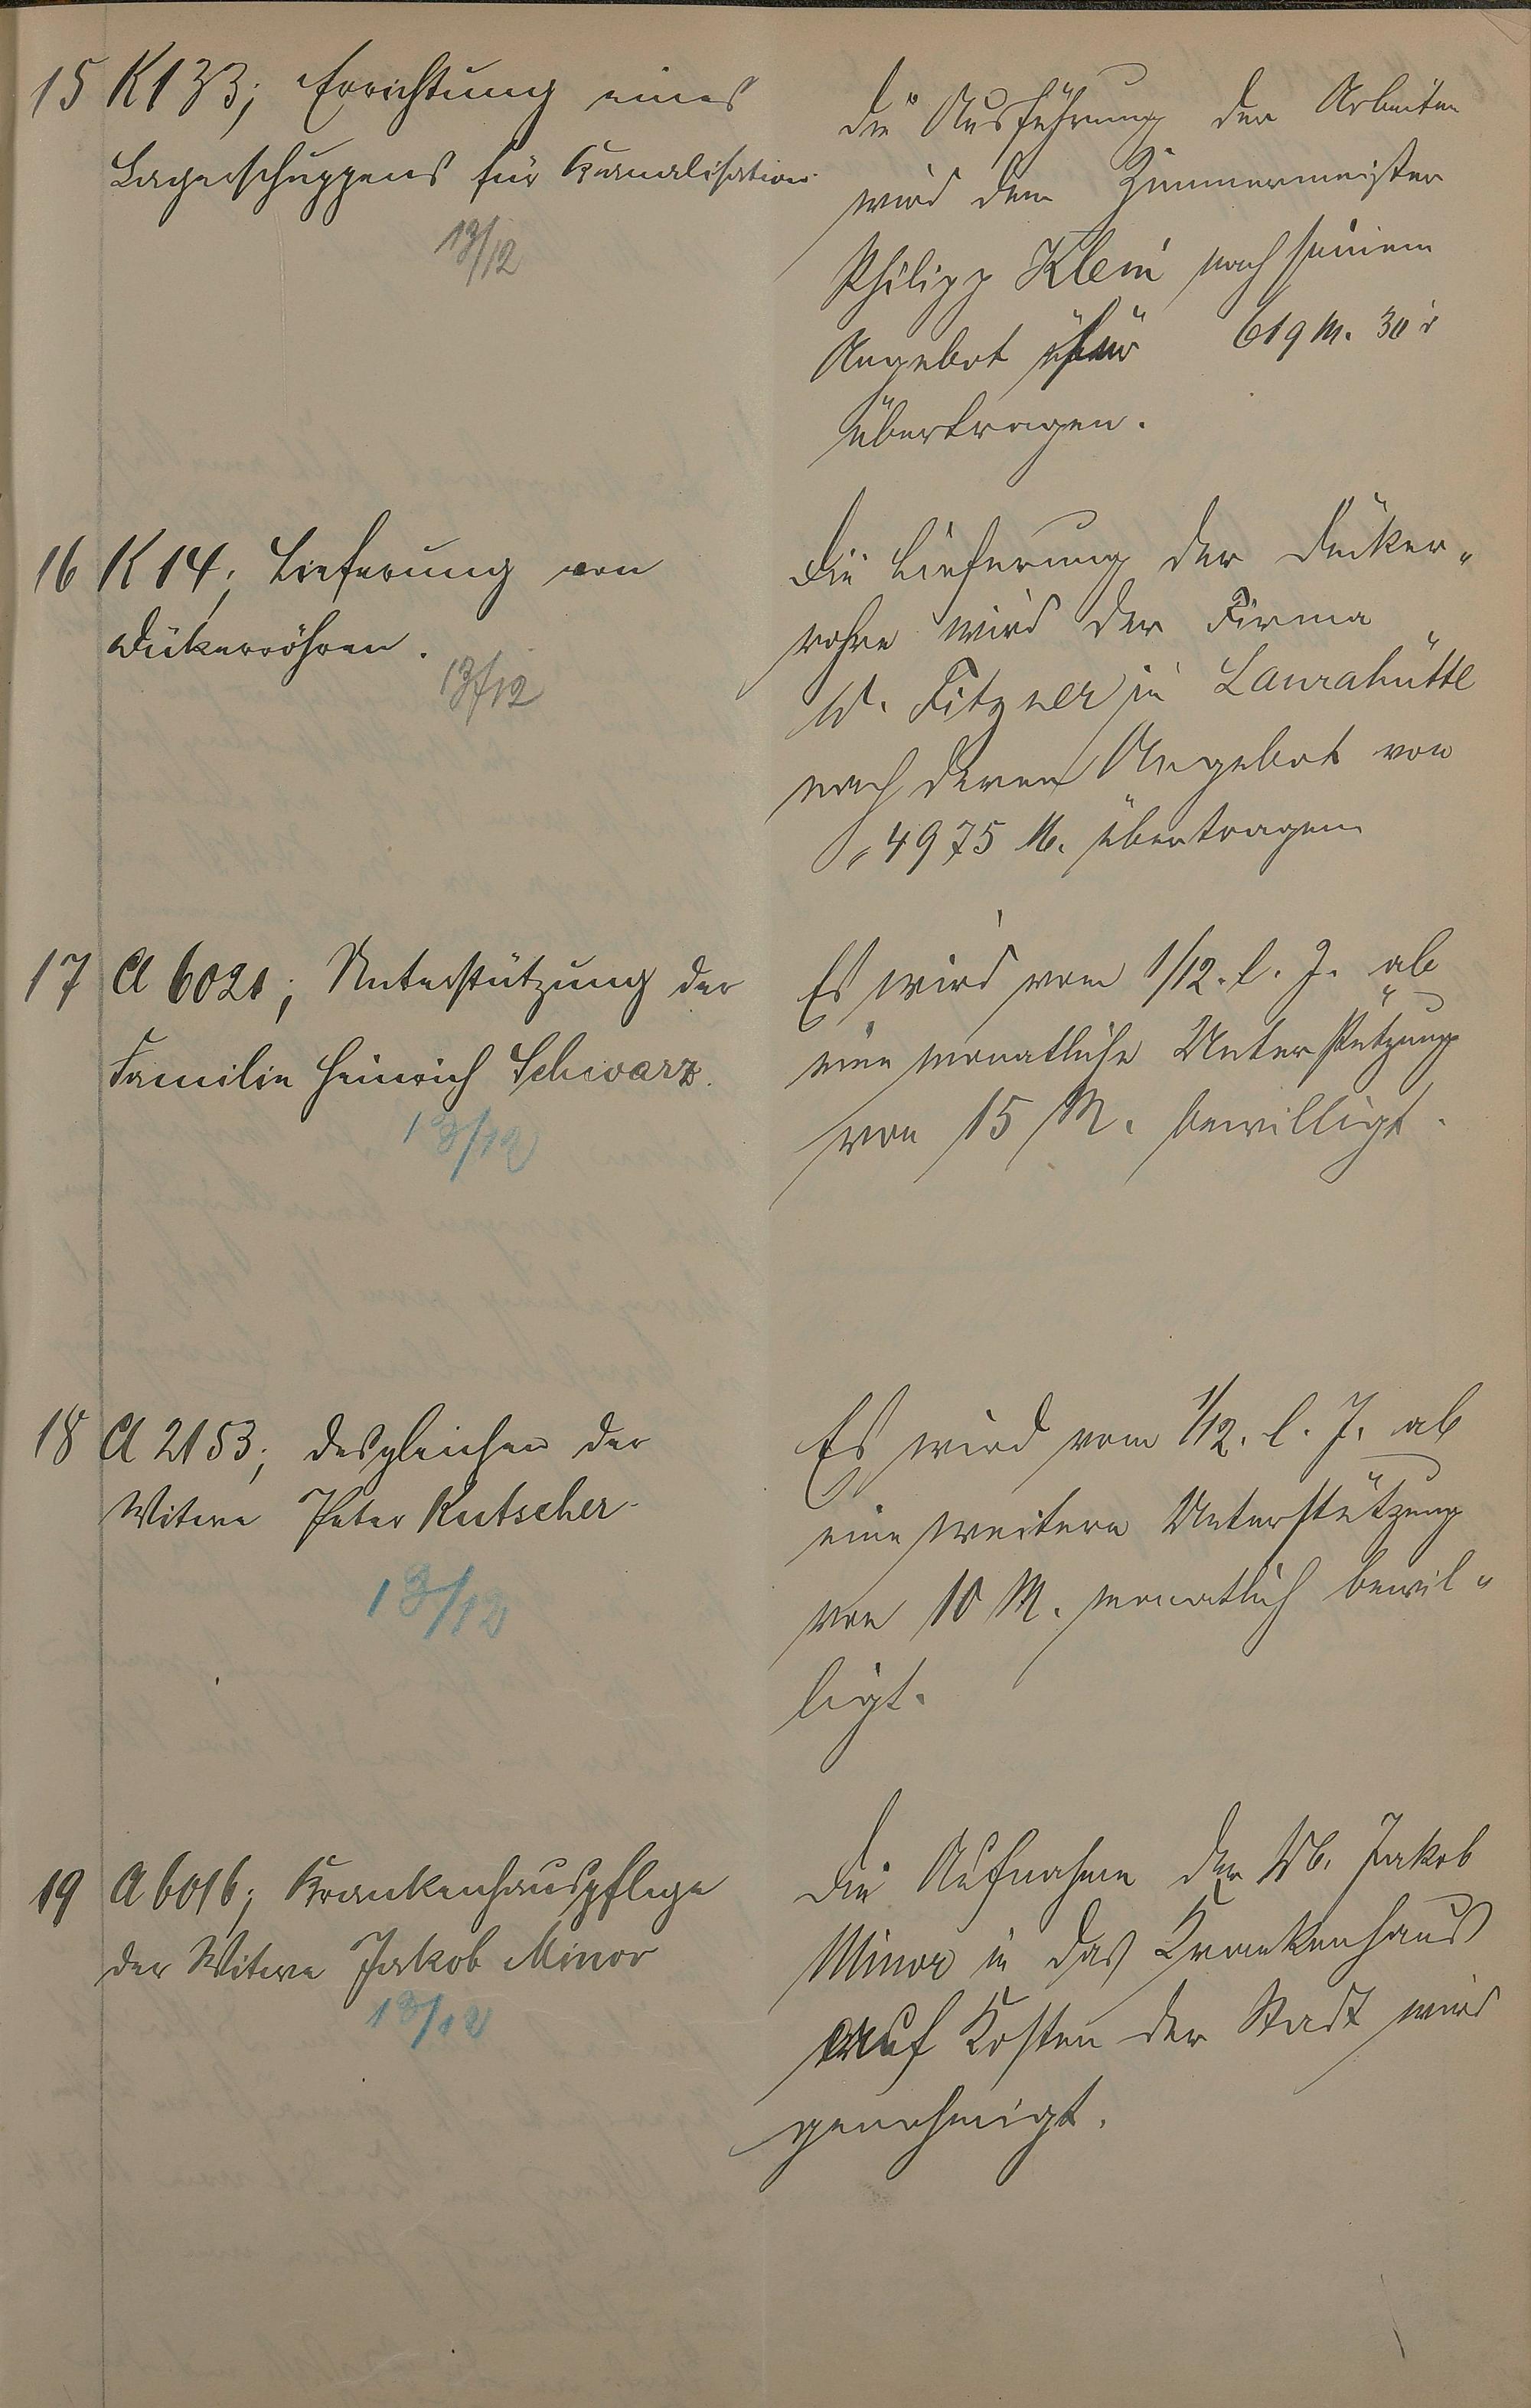 15 K 133; Errichtung eines
Lagerschuppens für Kanalisation
13/12
Die Ausführung der Arbeiten
wird dem Zimmermeister
Philipp Klein nach seinem
Angebot für 619 M. 30 d
übertragen.
16 K 14; Lieferung von
Dükerröhren.
13/12
Die Lieferung der Düker-
rohre wird der Firma
W. Fitzner in Laurahütte
nach deren Angebot von
4975 M. übertragen
17 A 6021; Unterstützung der
Familie Heinrich Schwarz.
13/12
Es wird vom 1/12. l. J. ab
eine monatliche Unterstützung
von 15 M. bewilligt.
18 A 2153; desgleichen der
Witwe Peter Kutscher
13/12
Es wird vom 1/12. l. J. ab
eine weitere Unterstützung
von 10 M. monatlich bewil-
ligt.
19 A 6016; Krankenhauspflege
der Witwe Jakob Minor
13/12
Die Aufnahme der W. Jakob
Minor in das Krankenhaus
auf Kosten der Stadt wird
genehmigt.